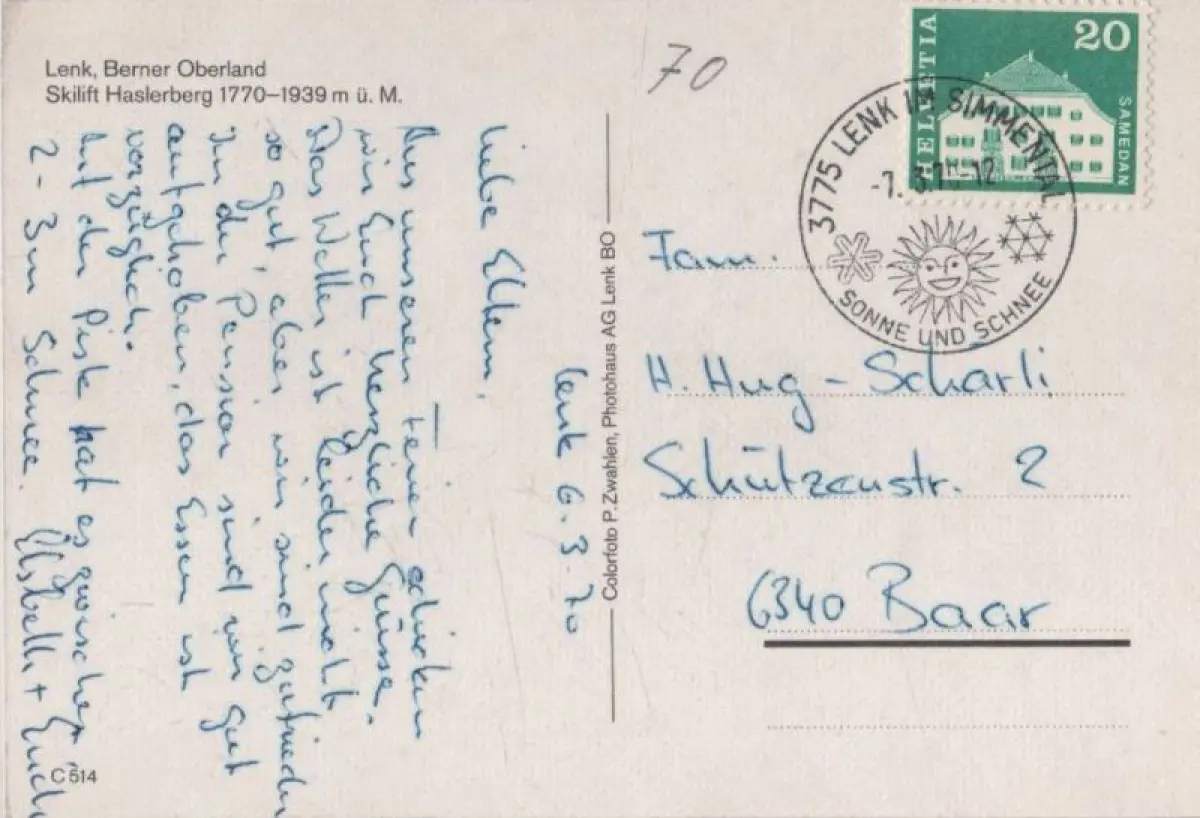 Lenk, Berner Oberland
Skilift Haslerberg 1770–1939 m ü. M.
Lenk 6.3.70
Liebe Eltern,
Aus unseren Ferien schicken
wir Euch herzliche Grüsse.
Das Wetter ist leider nicht
so gut, aber wir sind zufrieden
In der Pension sind wir gut
aufgehoben, das Essen ist
vorzüglich.
Auf der Piste hat es zwischen
2 - 3 m Schnee.
C 514
Colorfoto P. Zwahlen, Photohaus AG Lenk BO
70
HELVETIA
20
SAMEDAN
3775 LENK IM SIMMENTAL
SONNE UND SCHNEE
Fam.
H. Hug - Schärli
Schützenstr. 2
6340 Baar